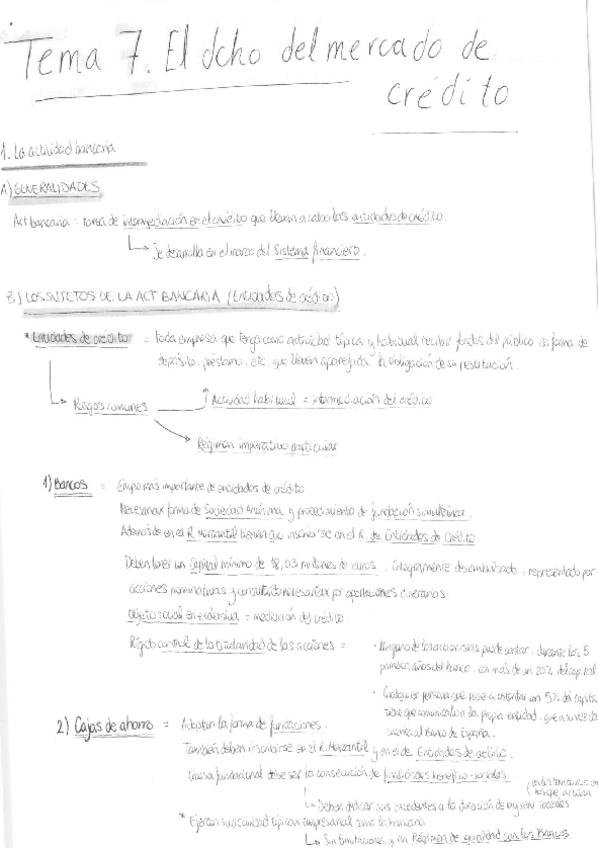 Tema 7. El dcho del mercado de
crédito
1. La actividad bancaria
A) GENERALIDADES
Act bancaria = tarea de intermediación en el crédito que llevan a cabo las entidades de crédito.
↳ Se desarrolla en el marco del Sistema financiero.
B) LOS SUJETOS DE LA ACT BANCARIA (Entidades de crédito)
* Entidades de crédito = toda empresa que tenga como actividad típica y habitual recibir fondos del público en forma de
depósito, préstamo, etc, que lleven aparejada la obligación de su restitución.
Rasgos comunes
Actividad habitual = intermediación del crédito
Régimen imperativo particular
1) Bancos = Grupo más importante de entidades de crédito
Necesaria forma de Sociedad Anónima y procedimiento de fundación simultánea.
Además de en el R. Mercantil tienen que inscribirse en el R. de Entidades de Crédito.
Deben tener un capital mínimo de 18,03 millones de euros, íntegramente desembolsado, representado por
acciones nominativas y constituido necesariam por aportaciones dinerarias
Objeto social en exclusiva = mediación del crédito
Rígido control de la titularidad de las acciones =
· Ninguno de los accionistas puede contar, durante los 5
primeros años del banco, con más de un 20% del capital
· Cualquier persona que pase a ostentar un 5% del capital
tiene que comunicarlo a la propia entidad, que a su vez da
cuenta al Banco de España.
2) Cajas de ahorro = Adoptan la forma de fundaciones.
También deben inscribirse en el R. Mercantil y en el de Entidades de crédito.
Causa fundacional debe ser la consecución de finalidades benéfico-sociales
↳ Deben dedicar sus excedentes a la dotación de
* Ejercen su actividad típica empresarial como la bancaria
↳ Sin limitaciones y en Régimen de igualdad con los Bancos